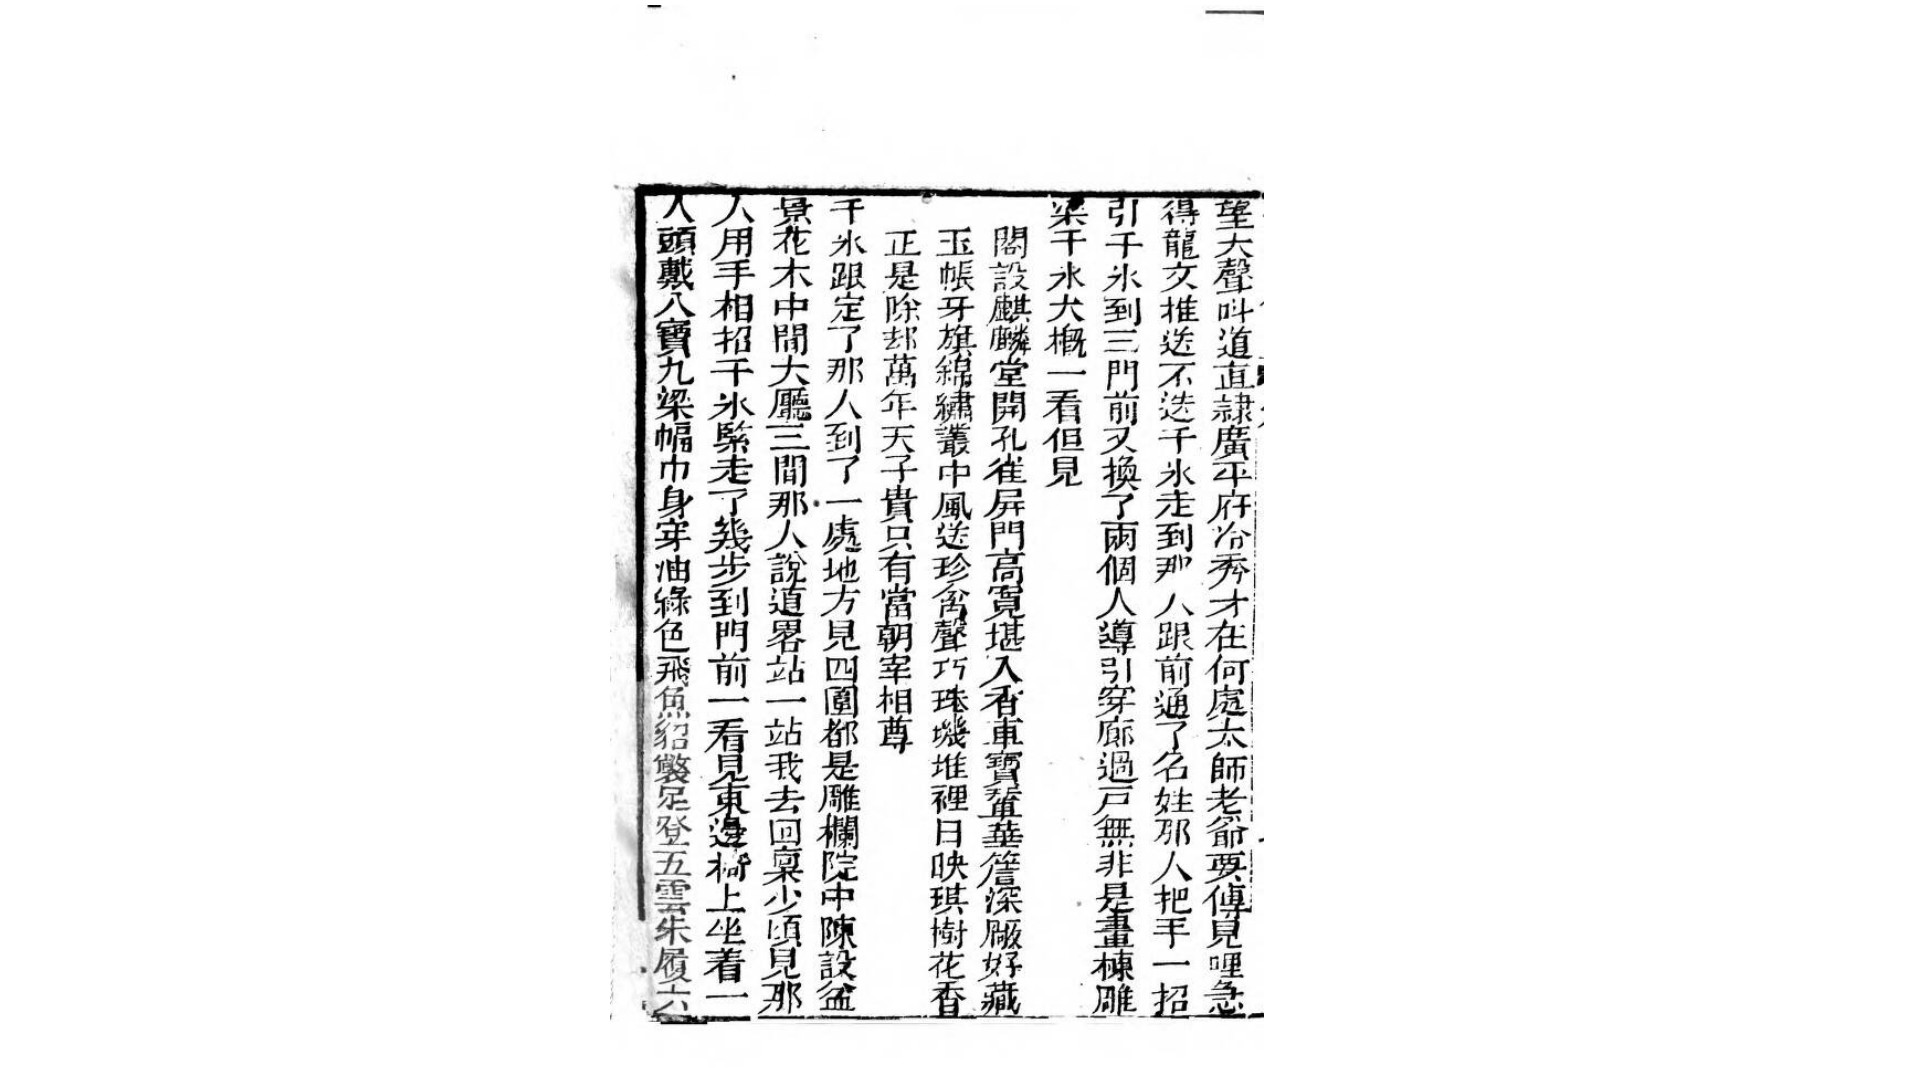 望大聲呌道直隷廣平府冷秀才在何處太師老爺要傳見哩急
得龍文推送不迭千氷走到那人跟前通了名姓那人把手一招
引千氷到三門前又換了兩個人導引穿廊過戸無非是畫棟雕
梁千氷大概一看但見
閣設麒麟堂開孔雀屏門高寛堪入香車寶輦華簷深厰好藏
玉帳牙旗錦繡叢中風送珍禽聲巧珠璣堆裡日映琪樹花香
正是除却萬年天子貴只有當朝宰相尊
千氷跟定了那人到了一處地方見四圍都是雕欄院中陳設盆
景花木中間大廳三間那人說道畧站一站我去回稟少頃見那
人用手相招千氷緊走了幾步到門前一看見東邊椅上坐着一
人頭戴八寶九梁幅巾身穿油綠色飛魚貂氅足登五雲朱履六